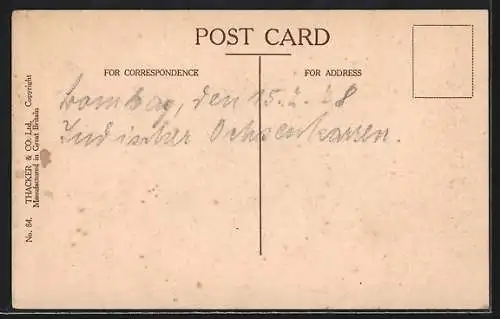 POST CARD
FOR CORRESPONDENCE
FOR ADDRESS
Bombay, den 15.2.28
Indischer Ochsenkarren.
No. 64. THACKER & CO. Ltd., Copyright
Manufactured in Great Britain